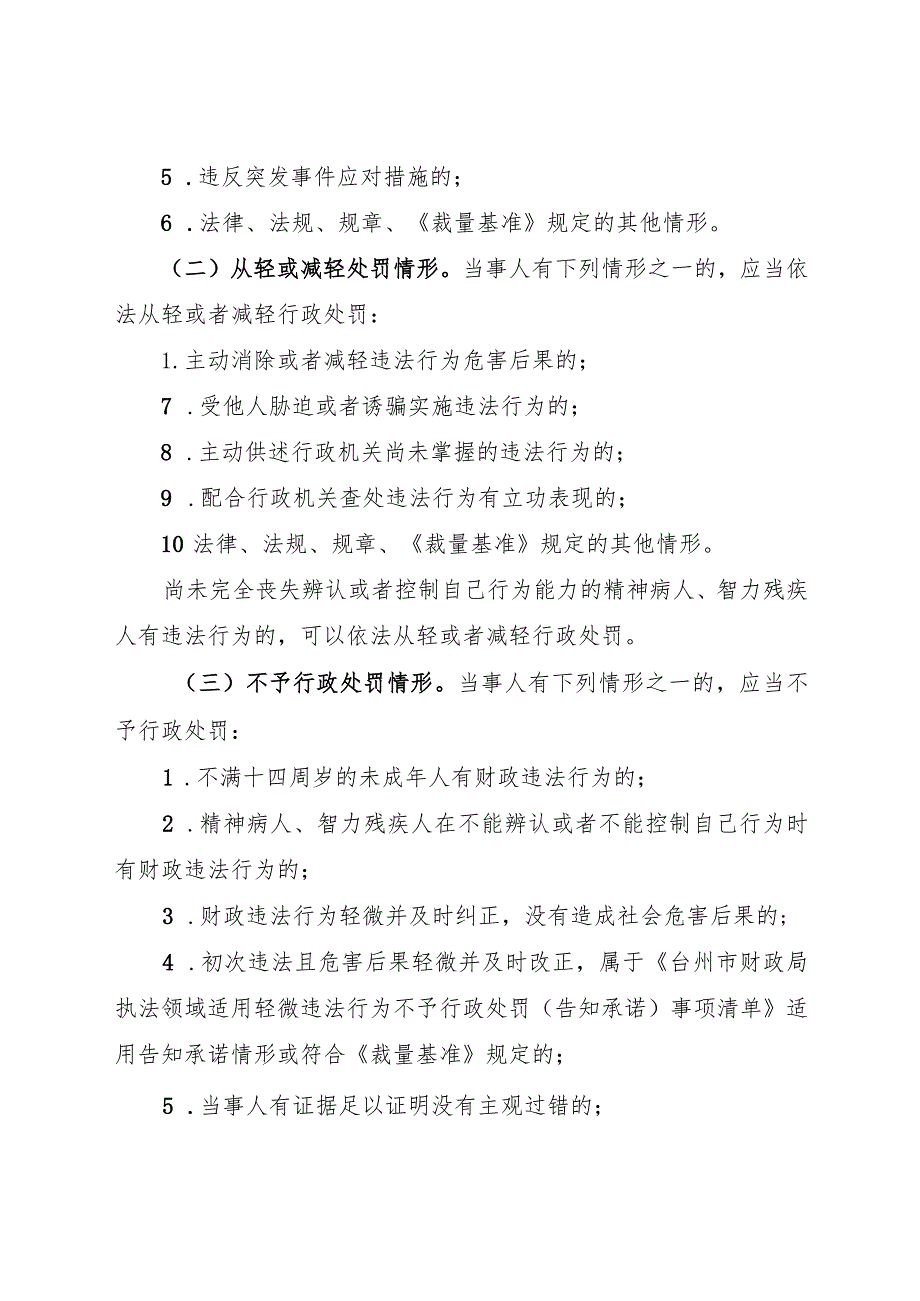 5 .违反突发事件应对措施的；
6 .法律、法规、规章、《裁量基准》规定的其他情形。
（二）从轻或减轻处罚情形。当事人有下列情形之一的，应当依
法从轻或者减轻行政处罚：
1.主动消除或者减轻违法行为危害后果的；
7 .受他人胁迫或者诱骗实施违法行为的；
8 .主动供述行政机关尚未掌握的违法行为的；
9 .配合行政机关查处违法行为有立功表现的；
10 法律、法规、规章、《裁量基准》规定的其他情形。
尚未完全丧失辨认或者控制自己行为能力的精神病人、智力残疾
人有违法行为的，可以依法从轻或者减轻行政处罚。
（三）不予行政处罚情形。当事人有下列情形之一的，应当不
予行政处罚：
1 .不满十四周岁的未成年人有财政违法行为的；
2 .精神病人、智力残疾人在不能辨认或者不能控制自己行为时
有财政违法行为的；
3 .财政违法行为轻微并及时纠正，没有造成社会危害后果的；
4 .初次违法且危害后果轻微并及时改正，属于《台州市财政局
执法领域适用轻微违法行为不予行政处罚（告知承诺）事项清单》适
用告知承诺情形或符合《裁量基准》规定的；
5 .当事人有证据足以证明没有主观过错的；